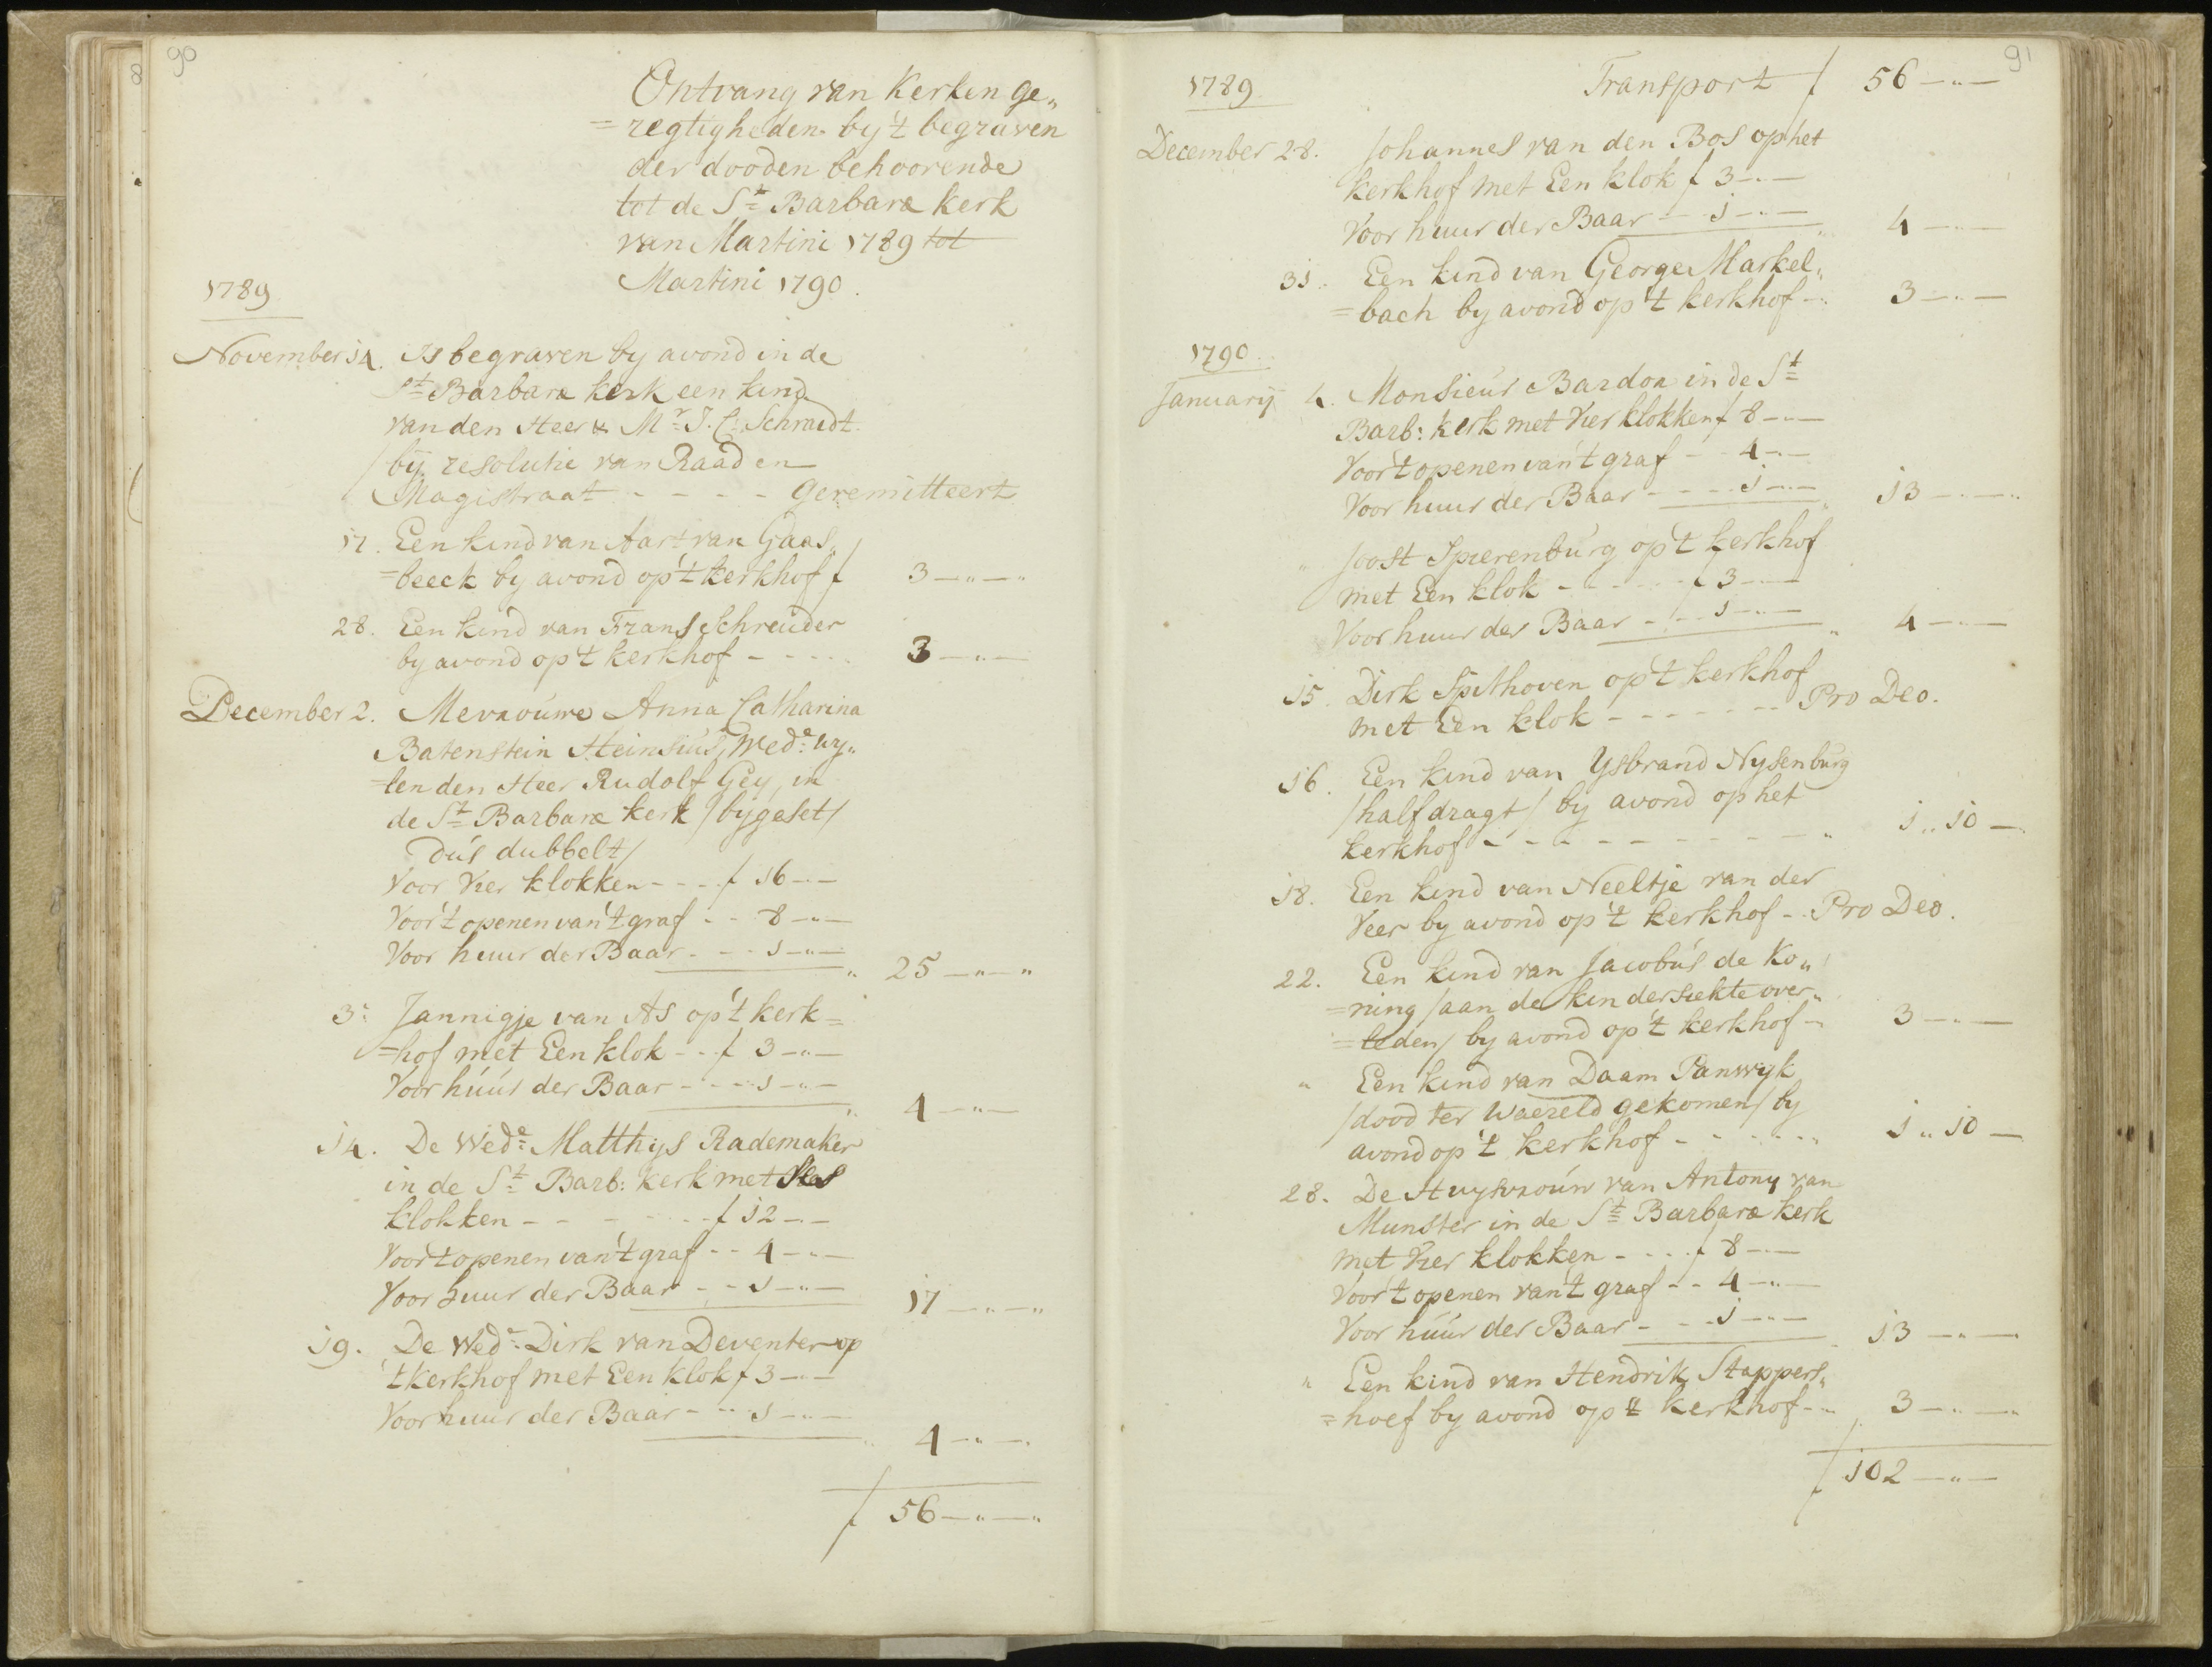 90
8
Ontvang van Kerken ge„
=regtigheden by 't begraven
der dooden behoorende
tot de St Barbara kerk
van Martini 1789 tot
Martini 1790.
1789
November 14. Is begraven by avond in de
St Barbara kerk een kind
van den Heer Mr J. C. Schmidt
/bij resolutie van Raad en
Magistraat - - - - - geremitteert
17. Een kind van Aart van Gaas„
=beeck by avond op 't kerkhof f 3 —„—„
28. Een kind van Frans Schreuder
by avond op 't kerkhof - - - - - 3 —„—
December 2. Mevrouwe Anna Catharina
Batenstein Heinsius, Wede wy„
=len den Heer Rudolf Gey, in
de St Barbara kerk /bygeset/
dus dubbelt/
Voor Vier klokken - - - - f 16 -„-
Voor 't openen van 't graf - - 8 -„-
Voor huur der Baar - - - 1 -„-
„ 25 —„—„
3: Jannigje van As op 't kerk=
=hof met Een klok - - f 3 -„-
Voor huur der Baar - - - - 1 -„-
„ 4 —„—
14. De Wede Matthijs Rademaker
in de St Barb: kerk met Ses
klokken - - - - - - - f 12 -„-
Voor 't openen van 't graf - - 4 -„-
Voor huur der Baar - - 1 -„- 17 —„—„
19. De Wede Dirk van Deventer op
't kerkhof met Een klok f 3 -„-
Voor huur der Baar - - - 1 -„-
„ 4 —„—
f 56 —„—„
91
1789 Transport f 56 —„—
December 28. Johannes van den Bos op het
kerkhof met Een klok f 3 -„-
Voor huur der Baar - - 1 -„- „ 4 —„—
31. Een kind van George Markel„
=bach by avond op 't kerkhof - „ 3 —„—
1790
January 4. Monsieur Bardon in de St
Barb: kerk met Vier klokken f 8 -„-
Voor 't openen van 't graf - - 4 -„-
Voor huur der Baar - - - - 1 -„- „ 13 —„—„
„ Joost Spierenburg op 't kerkhof
met Een klok - - - - - - f 3 -„-
Voor huur der Baar - - - 1 -„- „ 4 —„—
15. Dirk Spithoven op 't kerkhof
met Een klok - - - - - - - Pro Deo.
16. Een kind van Ysbrand Nysenburg
/half dragt/ by avond op het
kerkhof - - - - - - - - - - „ 1 „ 10 —
18. Een kind van Neeltje van der
Veer by avond op 't kerkhof - . Pro Deo.
22. Een kind van Jacobus de Ko„
=ning /aan de kindersiekte over„
=leden/ by avond op 't kerkhof - „ 3 —„—
„ Een kind van Daam Panwyk
/dood ter waereld gekomen/ by
avond op 't kerkhof - - - - - - „ 1 „ 10 —
28. De Huysvrouw van Antony van
Munster in de St Barbara kerk
met Vier klokken - - - - f 8 -„-
Voor 't openen van 't graf - - 4 -„-
Voor huur der Baar - - - 1 -„- 13 —„—
„ Een kind van Hendrik Stappers„
=hoef by avond op 't kerkhof - „ 3 —„—
f 102 —„—